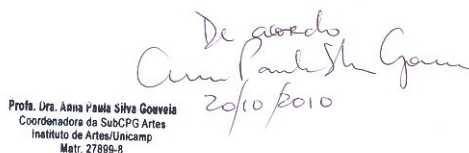 De acordo
Anna Paula Silva Gouveia
20/10/2010
Profa. Dra. Anna Paula Silva Gouveia
Coordenadora da SubCPG Artes
Instituto de Artes/Unicamp
Matr. 27899-8